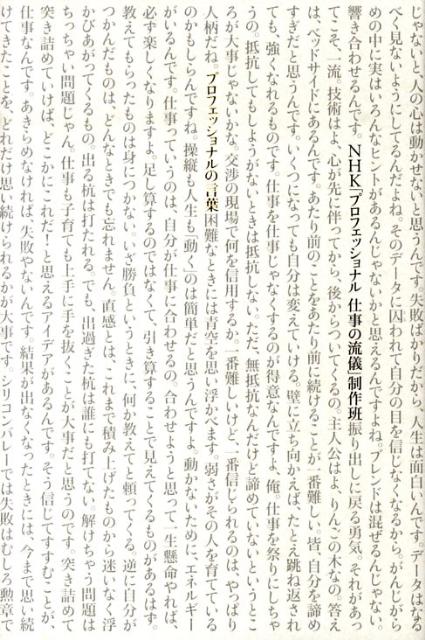 じゃないと、人の心は動かせないと思うんです。失敗ばかりだから、人生は面白いんです。データはなる
べく見ないようにしてるんだよね。そのデータに囚われて自分の目を信じなくなるから。がんじがら
めの中に実はいろんなヒントがあるんじゃないかと思えるんですよね。ブレンドは混ぜるんじゃない。
響き合わせるんです。NHK「プロフェッショナル 仕事の流儀」制作班 振り出しに戻る勇気。それがあっ
てこそ、一流。技術は、心が先に伴ってから、後からついてくるの。主人公はよ、りんごの木なの。答え
は、ベッドサイドにあるんです。あたり前のことをあたり前に続けることが一番難しい。皆、自分を諦め
すぎだと思うんです。いくつになっても自分は変えていける。壁に立ち向かえば、たとえ跳ね返され
ても、強くなれるものです。仕事を仕事じゃなくするのが得意なんですよ、俺。仕事を祭りにしちゃ
うの。抵抗してもしようがないときは抵抗しない。ただ、無抵抗なんだけど諦めていないというとこ
ろが大事じゃないかな。交渉の現場で何を信用するか。一番難しいけど、一番信じられるのは、やっぱり
人柄だね。プロフェッショナルの言葉 困難なときには青空を思い浮かべます。弱さがその人を育てている
のかもしらんですね。操縦も人生も「動く」のは簡単だと思うんですよ。動かないために、エネルギー
がいるんです。仕事っていうのは、自分が仕事に合わせるの。合わせようと思って一生懸命やれば、
必ず楽しくなりますよ。足し算するのではなくて、引き算することで見えてくるものがあるはず。
教えてもらったものは身につかない。いざ勝負というときに、何か教えてと頼ってくる。逆に自分が
つかんだものは、どんなときでも忘れません。直感とは、これまで積み上げたものから迷いなく浮
かびあがってくるもの。出る杭は打たれる。でも、出過ぎた杭は誰にも打てない。解けちゃう問題は
ちっちゃい問題じゃん。仕事も子育ても上手に手を抜くことが大事だと思うのです。突き詰めて
突き詰めていけば、どこかにこれだ！と思えるアイデアがあるんです。そう信じてすすむことが、
仕事なんです。あきらめなければ、失敗やないんです。結果が出なくなったときには、今まで思い続
けてきたことを、どれだけ思い続けられるかが大事です。シリコンバレーでは失敗はむしろ勲章で